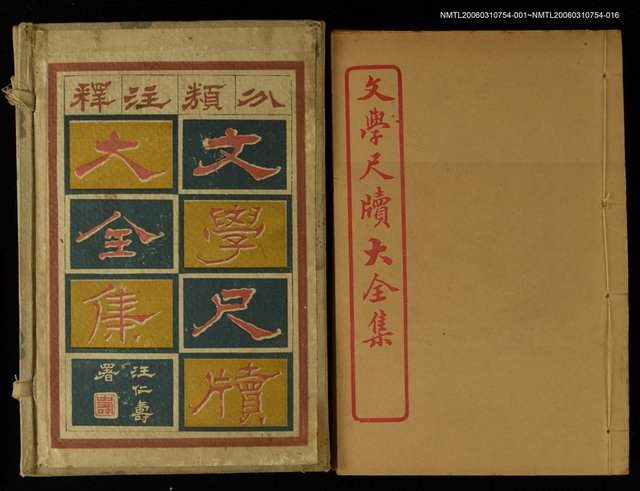 NMTL20060310754-001~NMTL20060310754-016
分類注釋
文學尺牘
大全集
汪仁壽
署
壽
文學尺牘大全集